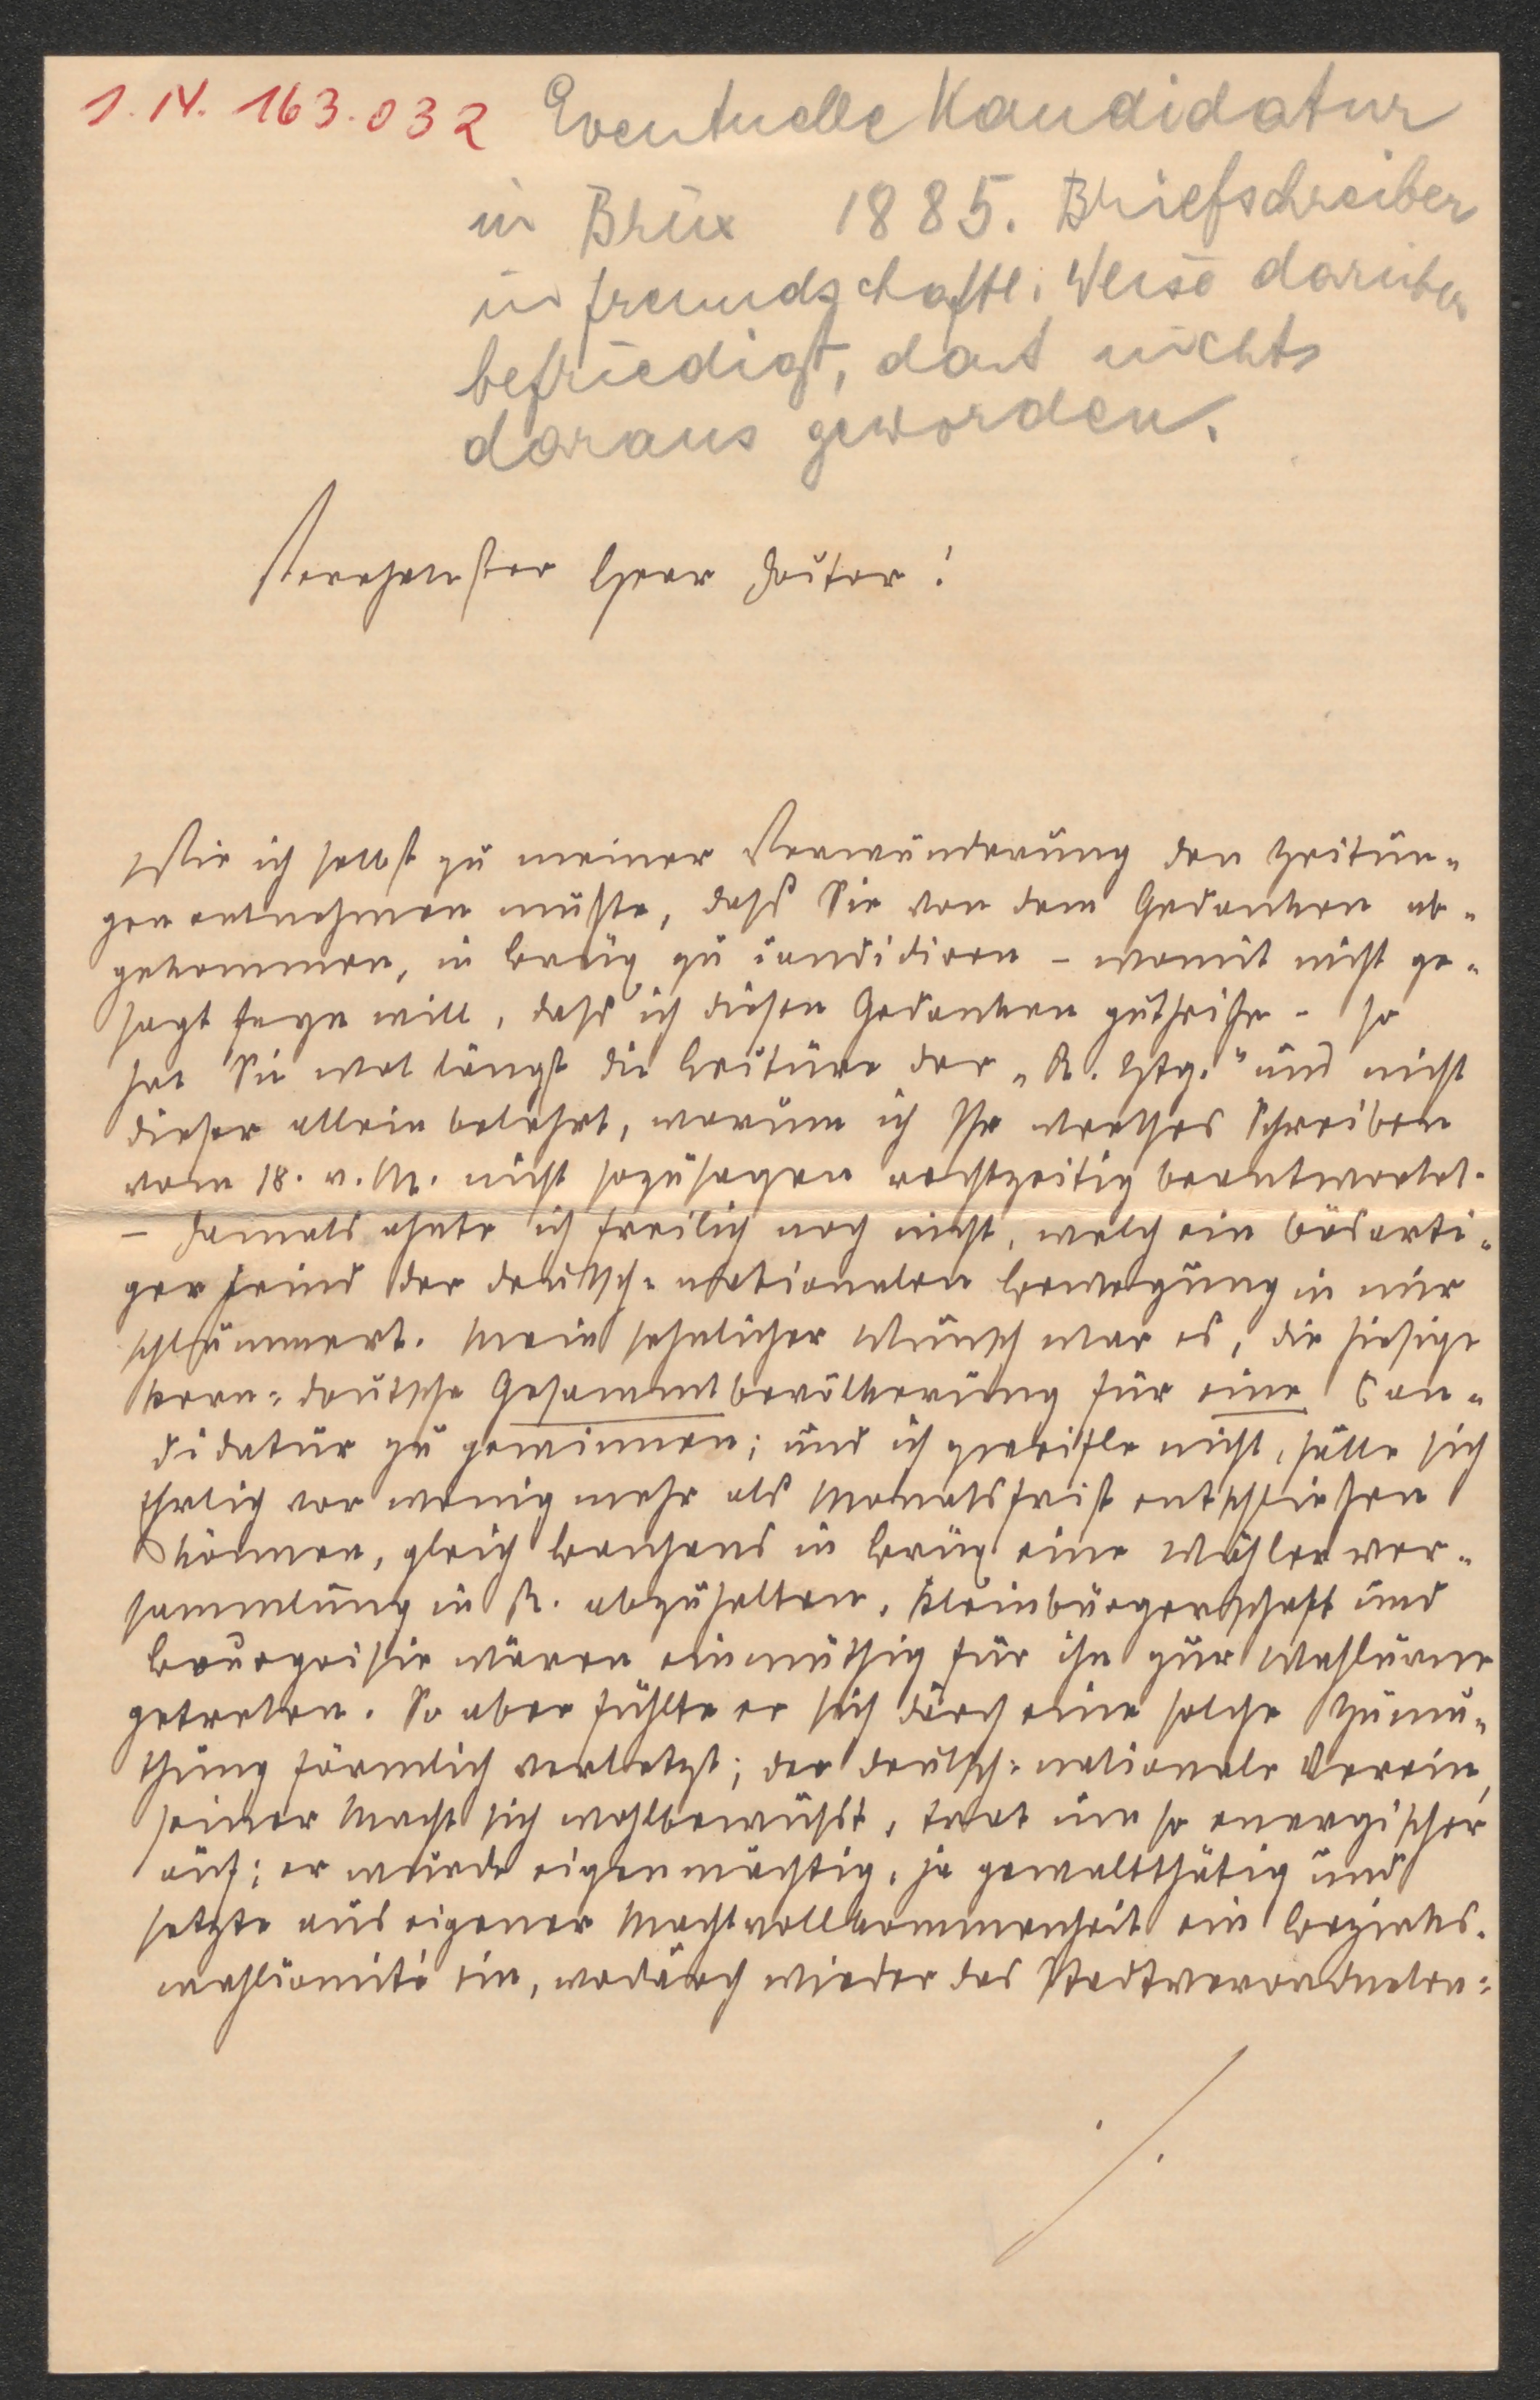 I.N. 163.032 Eventuelle Kandidatur
in Brüx 1885. Briefschreiber
in freundschaftl. Weise darüber
befriedigt, dass nichts
daraus geworden.
Verehrtester Herr Doctor!
Wie ich selbst zu meiner Verwunderung den Zeitun-
gen entnehmen mußte, dass Sie von dem Gedanken ab-
gekommen, in Brüx zu candidiren – womit nicht ge-
sagt seyn will, dass ich diesen Gedanken gutheiße – so
hat Sie wol längst die Lectüre der „B. Ztg." und nicht
dieser allein belehrt, warum ich Ihr werthes Schreiben
vom 18. v. M. nicht sozusagen rechtzeitig beantwortet.
– Damals ahnte ich freilich noch nicht, welch ein bösarti-
ger Feind der deutsch-nationalen Bewegung in mir
schlummert. Mein sehnlicher Wunsch war es, die hiesige
kern-deutsche Gesammtbevölkerung für eine Can-
didatur zu gewinnen; und ich zweifle nicht, hätte sich
Ehrlich vor wenig mehr als Monatsfrist entschließen
können, gleich in Brüx eine Wählerver-
sammlung in B. abzuhalten, Kleinbürgerschaft und
Bourgeoisie wären einmüthig für ihn zur Wahlurne
getreten. So aber fühlte er sich durch eine solche Zumu-
thung förmlich verletzt; der deutsch-nationale Verein,
seiner Macht sich wohlbewußt, trat um so energischer
auf; er wurde eigenmächtig, ja gewaltthätig und
setzte aus eigener Machtvollkommenheit ein Bezirks-
wahlcomité ein, wodurch wieder das Stadtverordneten-
./.